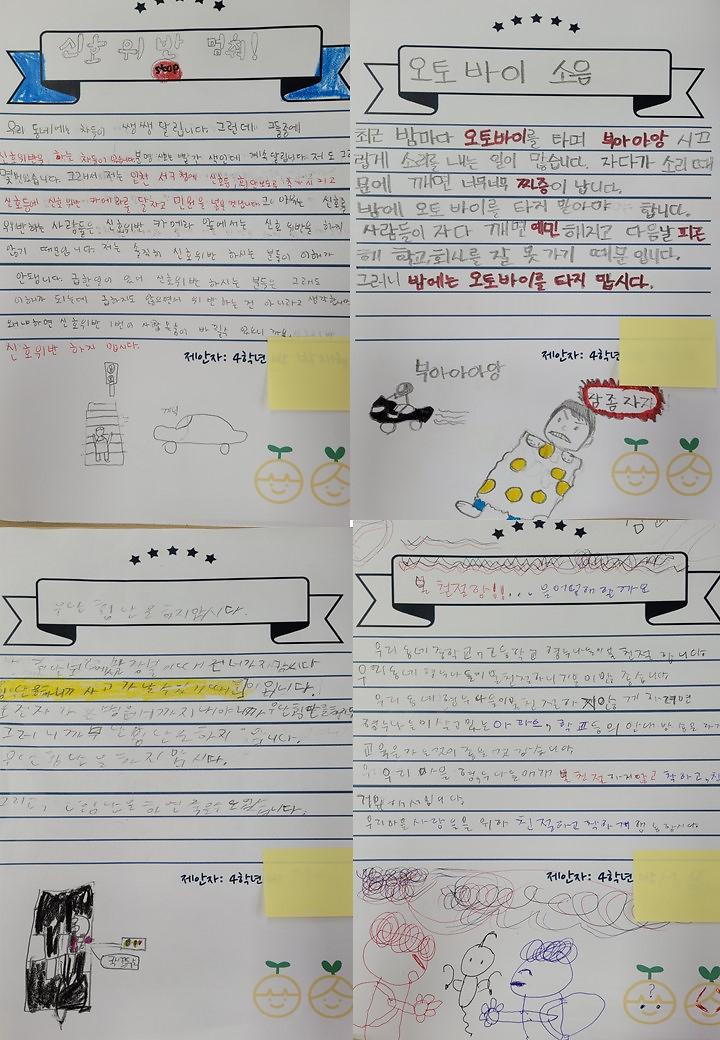 신호 위반 멈춰!
stop
우리 동네에는 차들이 쌩쌩 달립니다. 그런데 그중에
신호위반을 하는 차들이 있습니다. 분명 신호는 빨간 색인데 계속 달립니다. 저도
몇번 봤습니다. 그래서 저는 인천 서구청에
신호등에 신호위반 카메라를 달자고 민원을 넣을 것입니다. 그 이유는 신호를
위반하는 사람들은 신호위반 카메라 앞에서는 신호 위반을 하지
않기 때문입니다. 저는 솔직히 신호위반 하시는 분들이 이해가
안됩니다. 급한일이 있어 신호위반 하시는 분들은 그래도
이해가 되는데 급하지도 않으면서 위반하는 건 아니라고 생각합니다
왜냐하면 신호위반 1번에 사람 목숨이 바뀔수 있으니까요.
신호위반 하지 맙시다.
제안자: 4학년
오토바이 소음
최근 밤마다 오토바이를 타며 부아아앙 시끄
럽게 소리를 내는 일이 많습니다. 자다가 소리 때
문에 깨면 너무너무 짜증이 납니다.
밤에 오토바이를 타지 말아야 합니다.
사람들이 자다 깨면 예민해지고 다음날 피곤
해 학교,회사를 잘 못 가기 때문입니다.
그러니 밤에는 오토바이를 타지 맙시다.
제안자: 4학년
부아아아앙
잠좀자자
무단 횡단을 하지맙시다.
사고가 날 수 있기 때문입니다.
그러니까 무단횡단을 하지 맙시다.
무단횡단을 하지 맙시다.
제안자: 4학년
불친절함!!... 을 어떻게 할까요
우리 동네 중학교, 고등학교 형누나들이 불친절합니다.
우리동네 형누나들이 불친절하니 기분이 안 좋습니다.
우리 동네 형누나들이 불친절하지 않게 하려면
형누나들이 살고 있는 아파트, 학교 등의 안내 방송으로
교육을 하는 것이 좋을 것 같습니다.
우리마을 형누나들에게 불친절하지않고 착하고,
우리마을 사람들을 위하 친절하고 착하게 행동합시다
제안자: 4학년
?